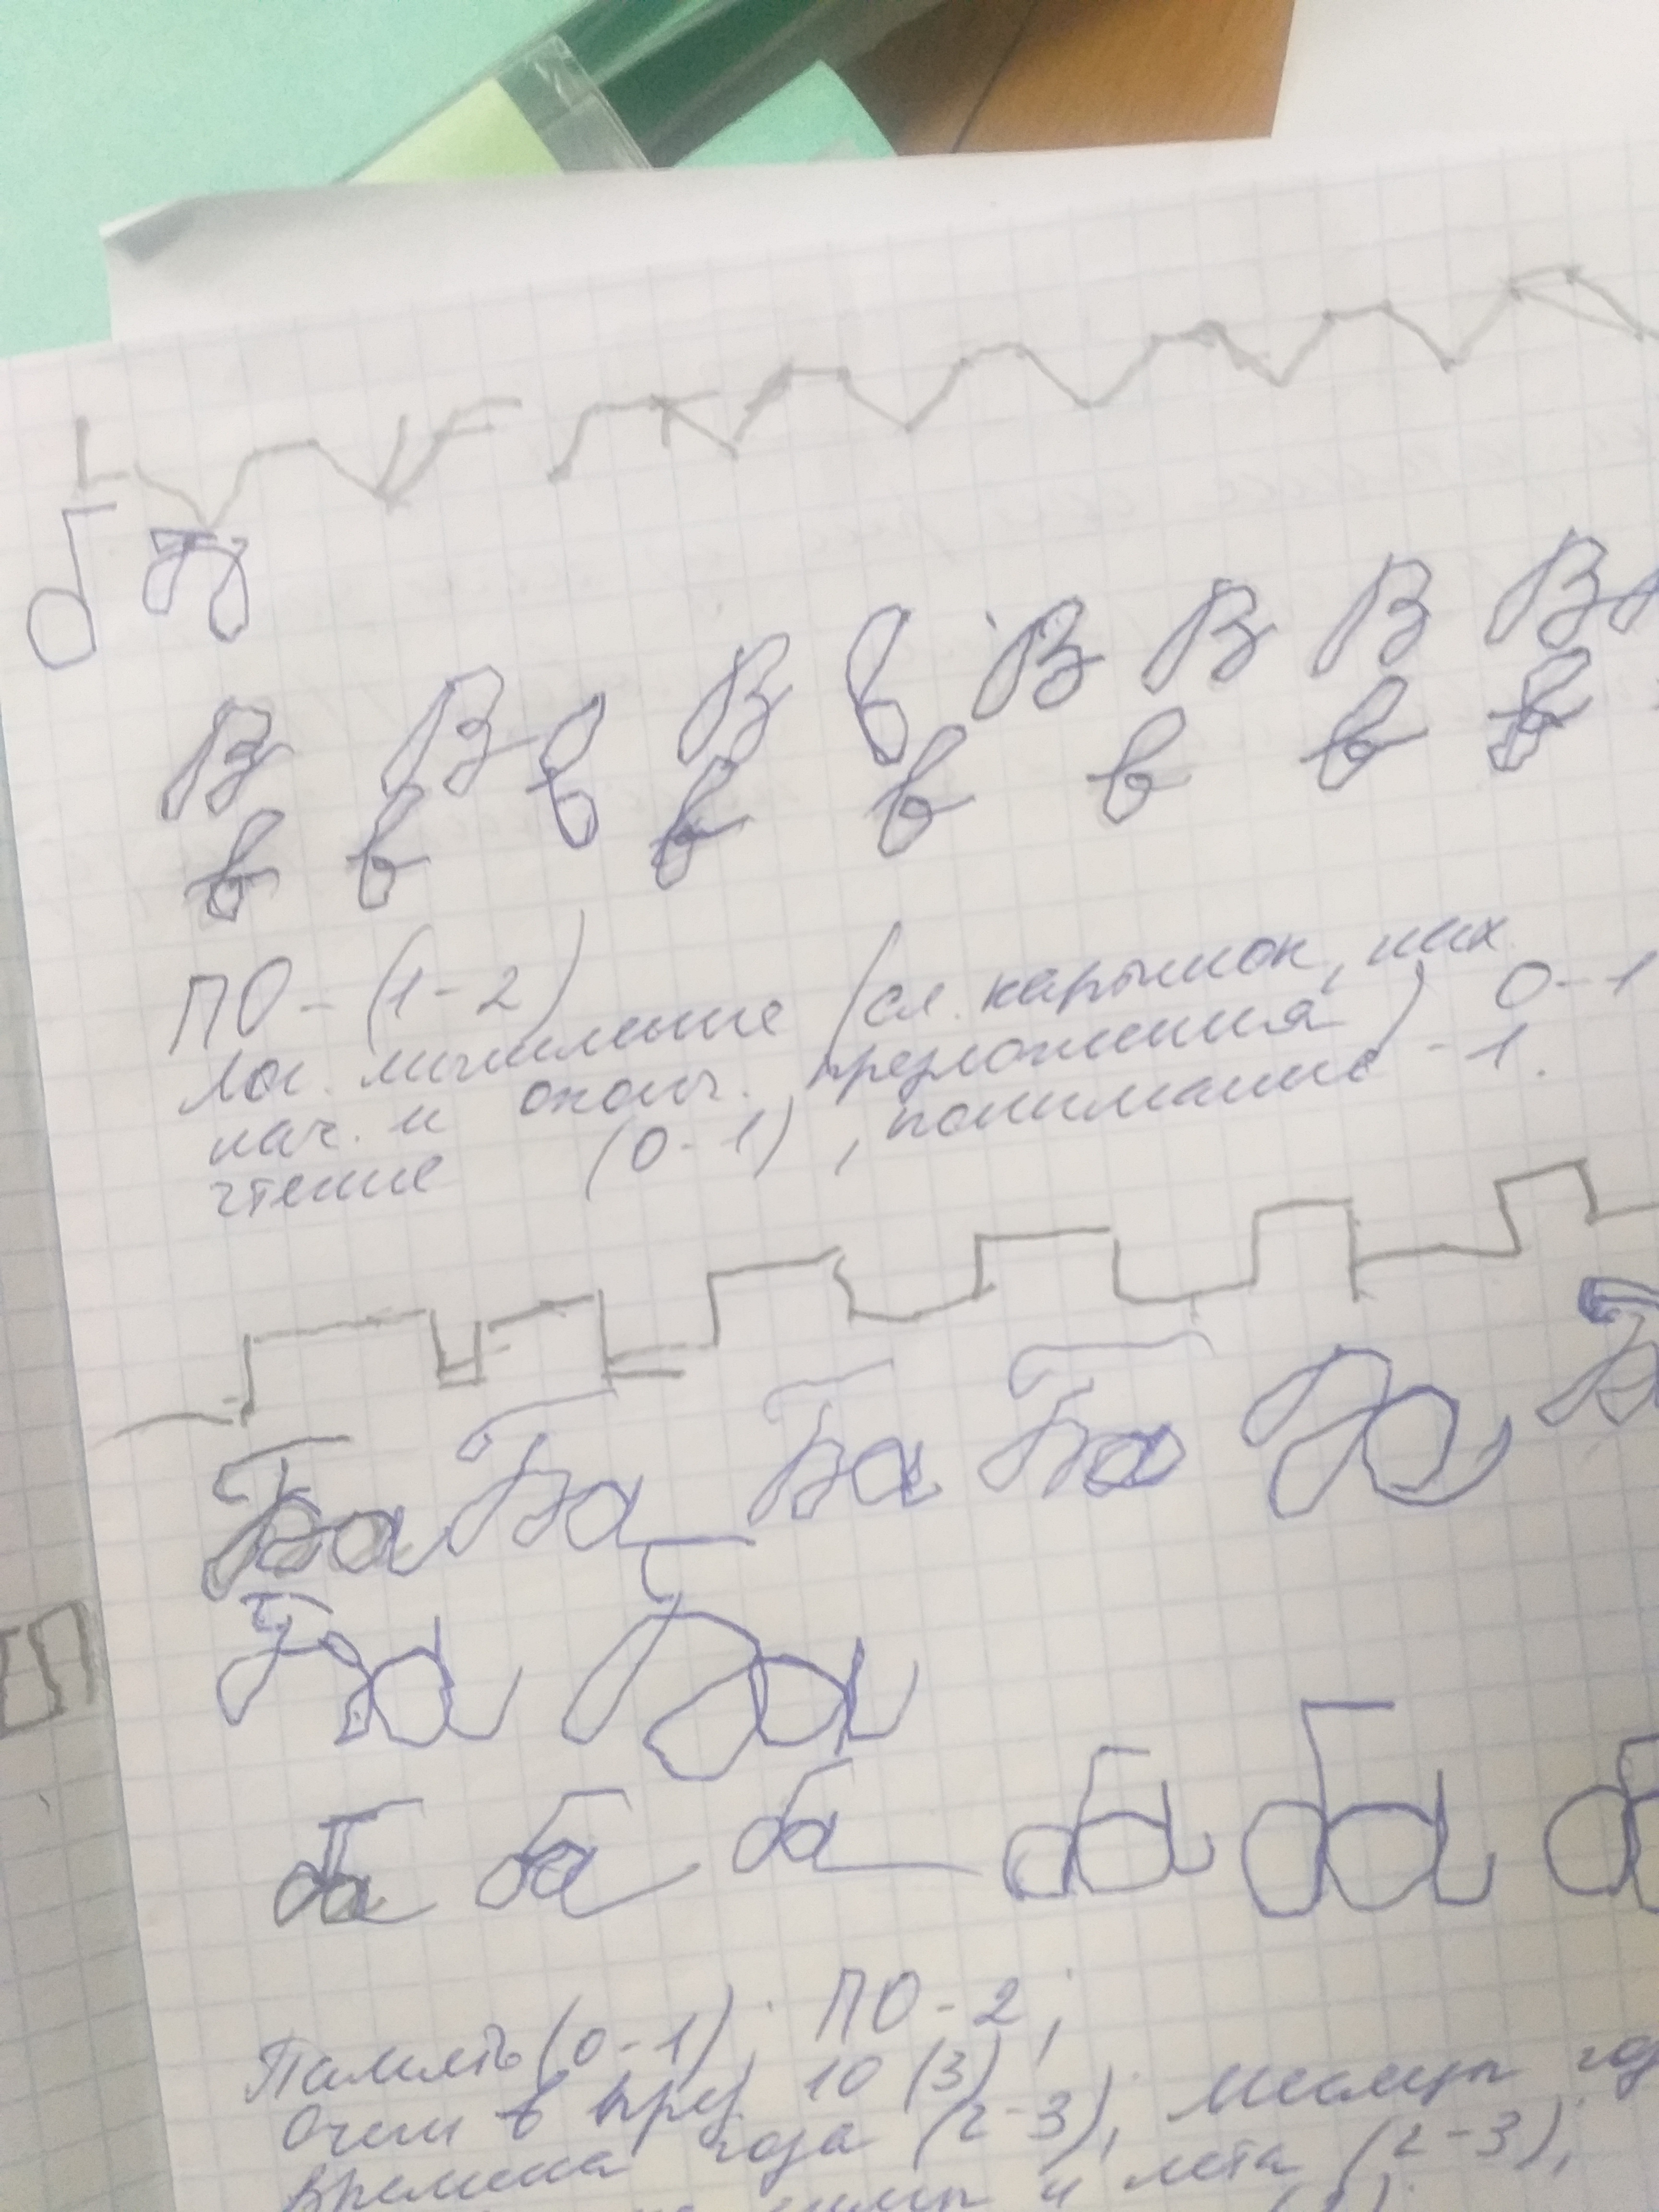 б
В В в В в В В В В
в в в в в в в в
ПО - (1-2)
Лог. мышление (сл. картинок, них
нач. и оконч. предложения) 0-1
чтение (0-1), понимание - 1.
Ба Ба Ба Ба Ба Б
Ба Ба
ба ба ба ба ба б
Память (0-1); ПО - 2;
Счет в пред. 10 (3);
Времена года (2-3), Месяцы год
зимы и лета (2-3),